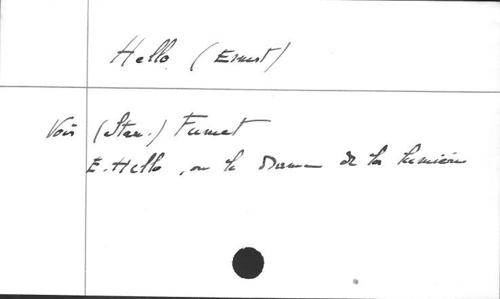 Hello (Ernest)
Voir (Stan.) Fumet
E. Hello, ou le Drame de la lumière